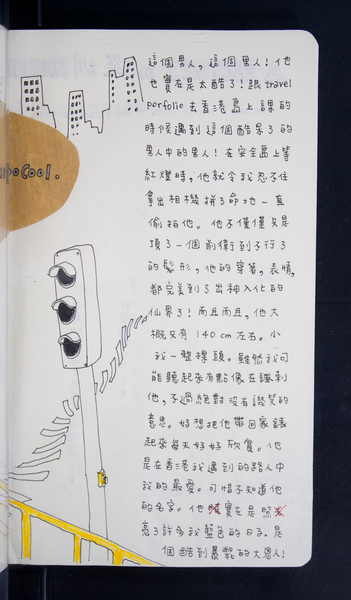 poCool.
這個男人，這個男人！他
也實在是太酷了！跟travel
porfolio去香港島上課的
時候遇到這個酷呆了的
男人中的男人！在安全島上等
紅燈時，他就令我忍不住
拿出相機拼了命地一直
偷拍他。他不僅僅只是
頂了一個前衛到不行了
的髮形，他的穿著，表情，
都完美到了出神入化的
仙界了！而且而且，他大
概只有140cm左右。小
我一整棵頭。雖然我可
能聽起來有點像在諷刺
他，不過絕對沒有譏笑的
意思。好想把他帶回家錶
起來每天好好欣賞。他
是在香港我遇到的路人中
我的最愛。可惜不知道他
的名字。他實在是照
亮了許多我藍色的日子。是
個酷到最毙的大恩人！